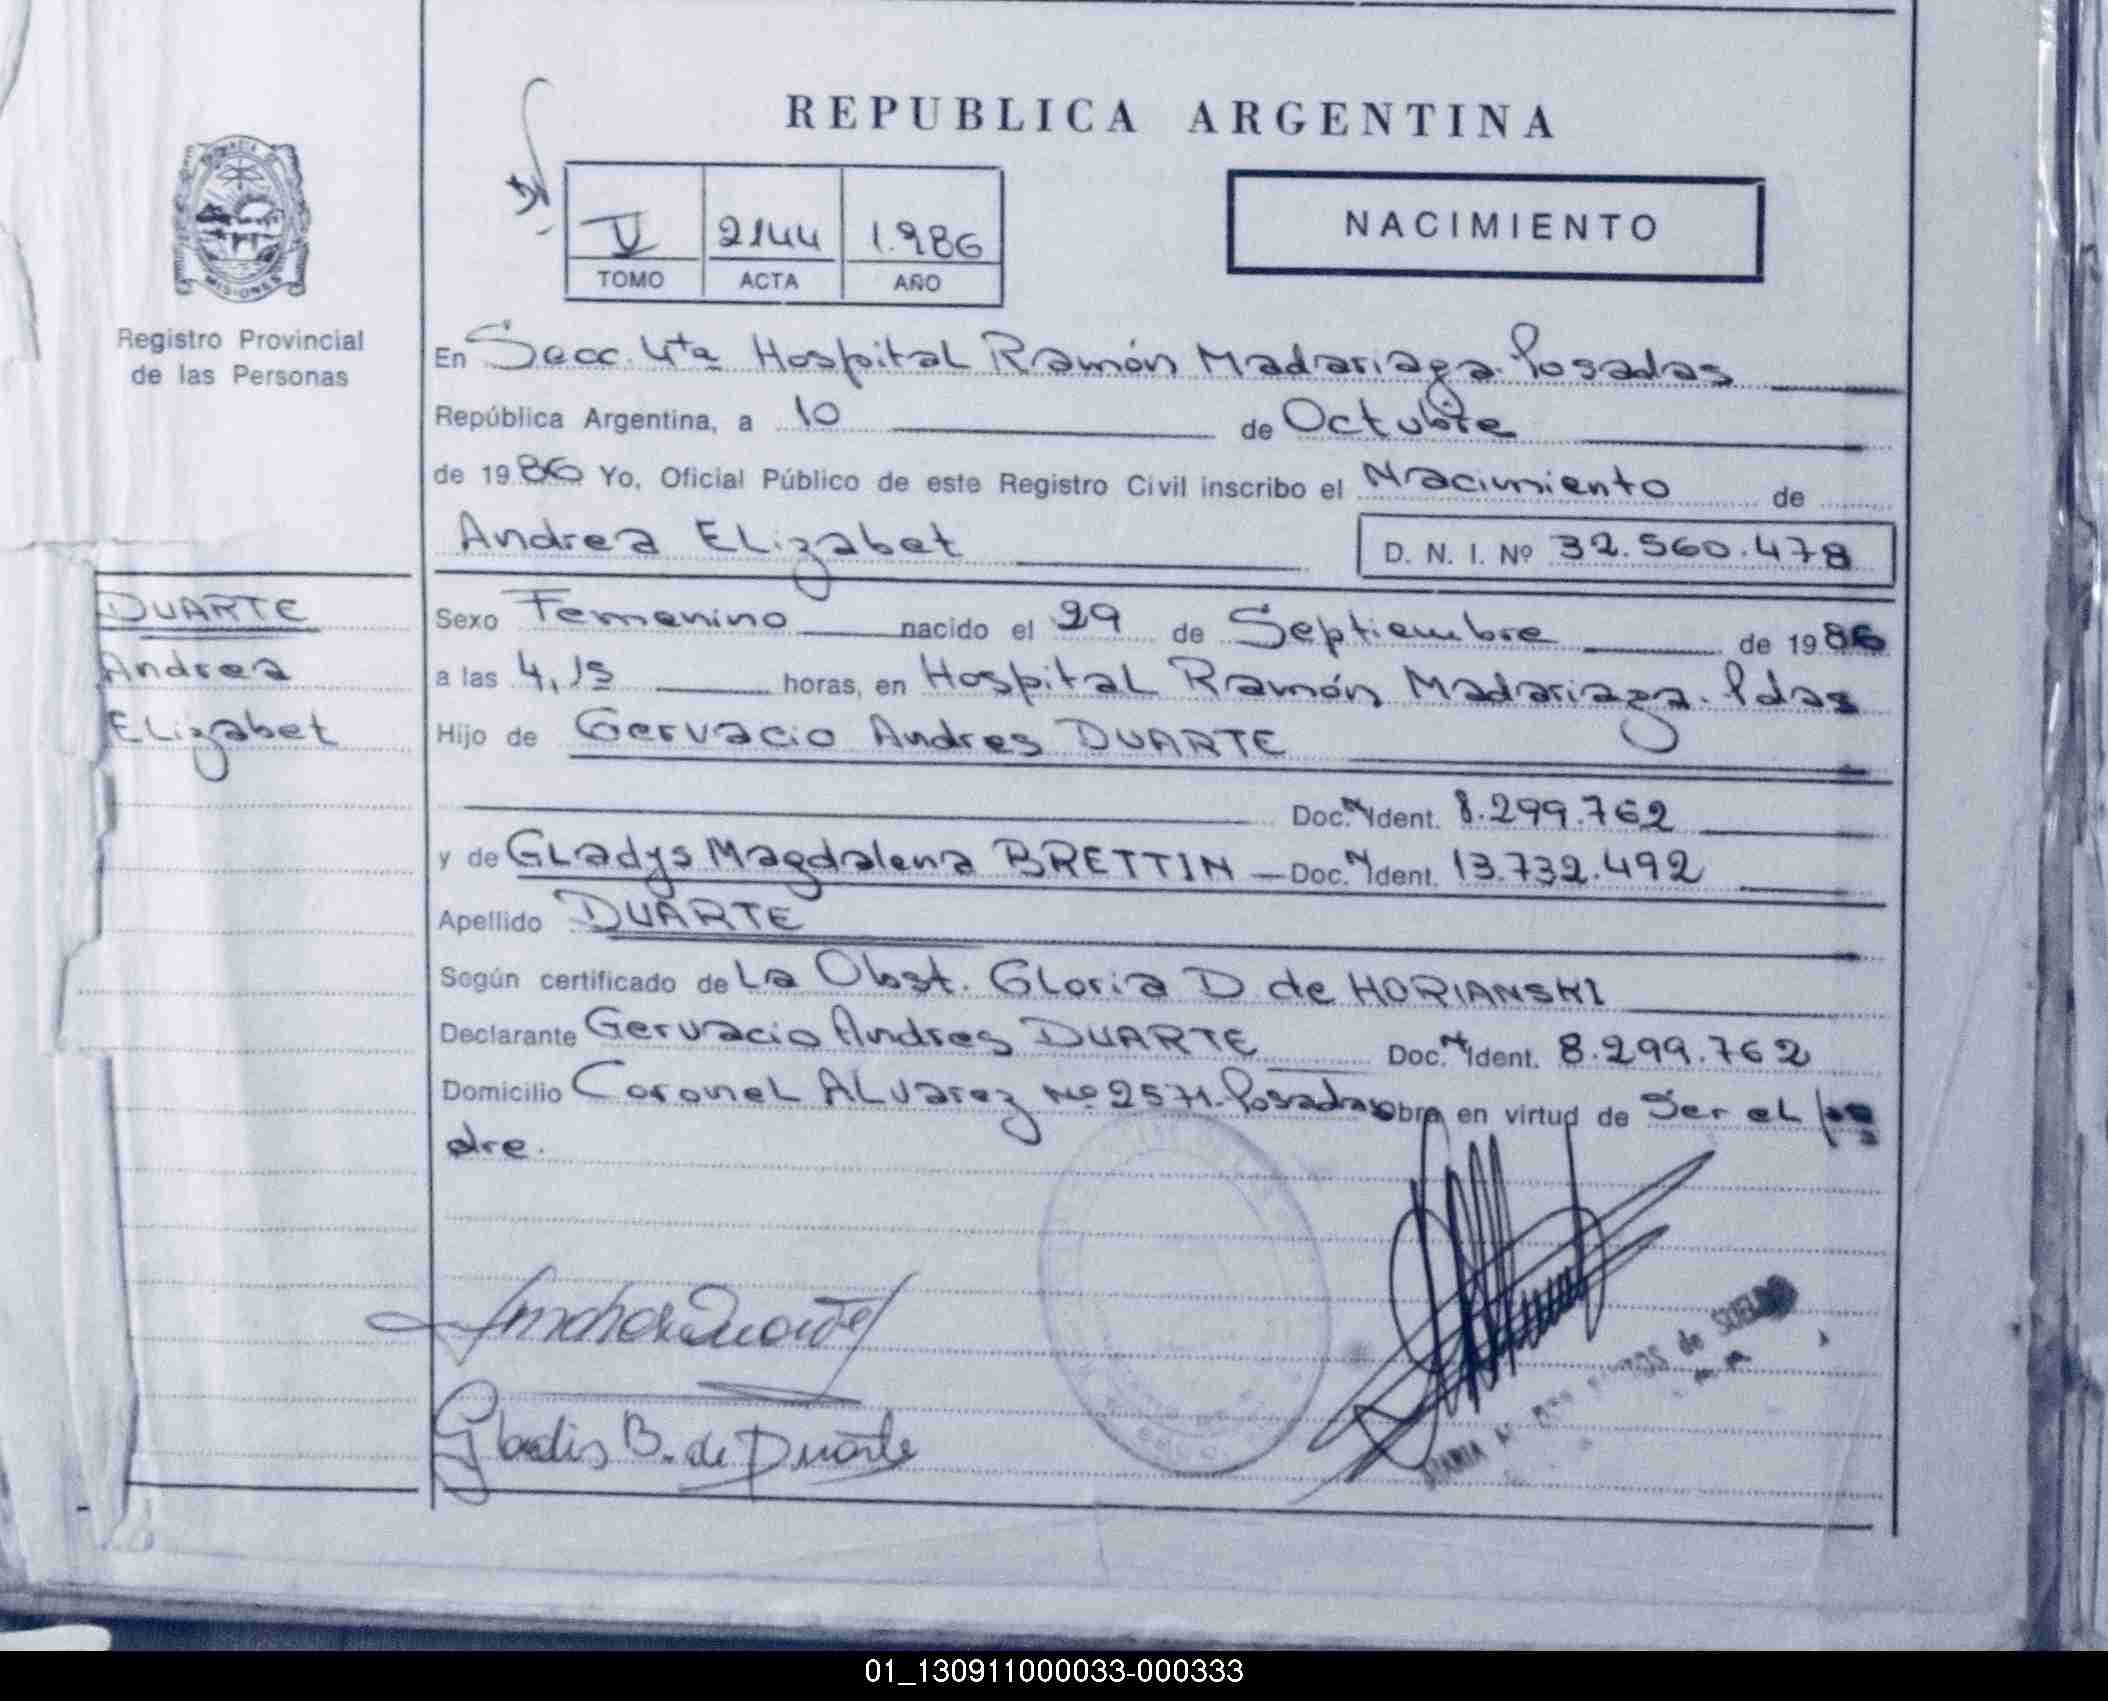 REPUBLICA ARGENTINA
V 2144 1.986
TOMO ACTA AÑO
NACIMIENTO
MISIONES
Registro Provincial
de las Personas
DUARTE
Andrea
Elizabet
En Secc. 4ta Hospital Ramón Madariaga. Posadas
República Argentina, a 10 de Octubre
de 1986 Yo, Oficial Público de este Registro Civil inscribo el Nacimiento de
Andrea Elizabet D. N. I. Nº 32.560.478
Sexo Femenino nacido el 29 de Septiembre de 1986
a las 4,15 horas, en Hospital Ramón Madariaga. Pdas
Hijo de Gervacio Andres DUARTE
Doc. N Ident. 8.299.762
y de Gladys Magdalena BRETTIN Doc. N Ident. 13.732.492
Apellido DUARTE
Según certificado de La Obst. Gloria D de HORIANSKI
Declarante Gervacio Andres DUARTE Doc. N Ident. 8.299.762
Domicilio Coronel Alvarez Nº 2571. Posadas obra en virtud de Ser el pa
dre.
Duarte
Gladis B. de Duarte
de
01_130911000033-000333